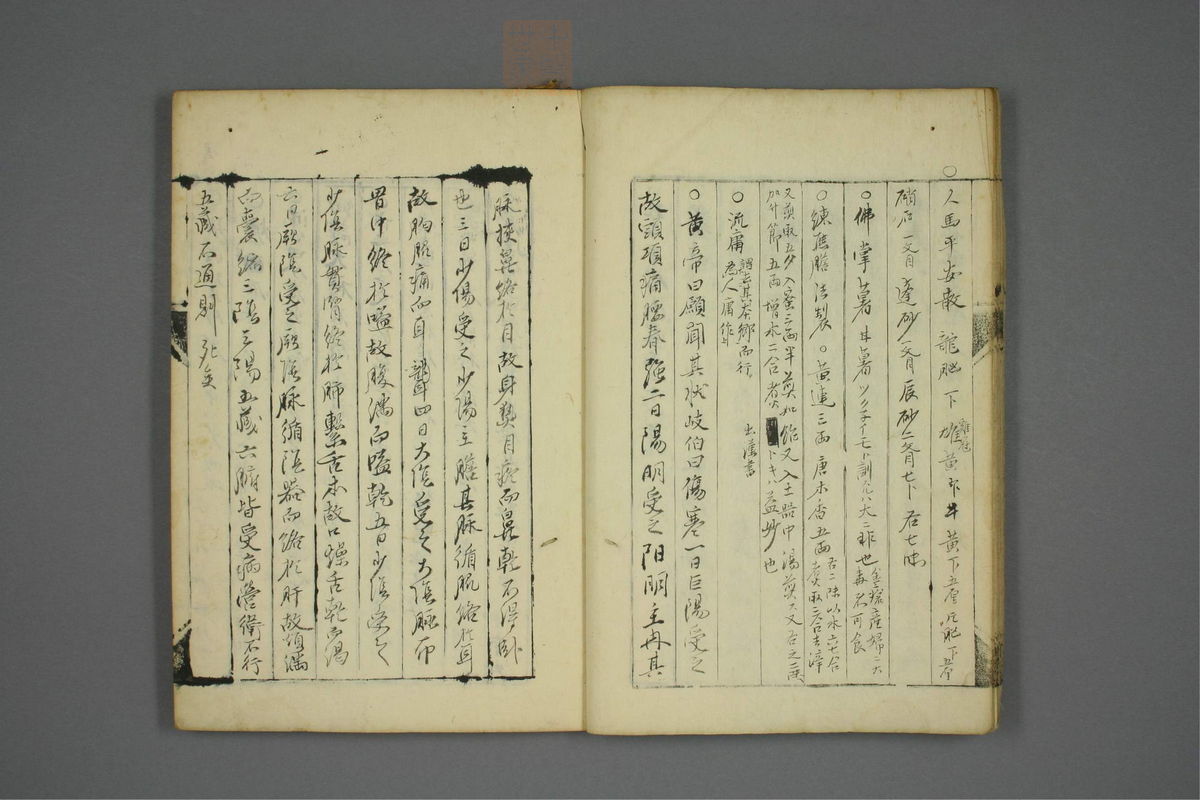 ○人馬平安散 龍脳下 雄黄 牛黄下五厘 下五厘
硝石一文目 蓬砂一文目 辰砂二文目七卜 右七味
○佛掌薯 訓 大ニ非也
金瘡産婦ニ大毒不可食
○練熊膽法製 ○黄連三両 唐木香五両
右二味以水六七合煮取二合去滓
又煎取五夕入蜜二両半煎如飴又入土器中湯煎
加竹節五両増水二合煮 益妙也
○流庸 謂去其本郷而行
為人庸作
出漢書
○黄帝曰願聞其状岐伯曰傷寒一日巨陽受之
故頭項痛腰脊強二日陽明受之阳明主肉其
脉挟鼻絡於目故身熱目疼而鼻乾不得卧
也三日少陽受之少陽主膽其脉循脇絡於耳
故胸脇痛而耳聾四日大陰受之大陰脉布
胃中絡於嗌故腹満而嗌乾五日少陰受之
少陰脉貫腎絡於肺繋舌本故口燥舌乾而渇
六日厥陰受之厥陰脉循陰器而絡於肝故煩満
而囊縮三陰三陽五藏六腑皆受病營衛不行
五藏不通則死矣